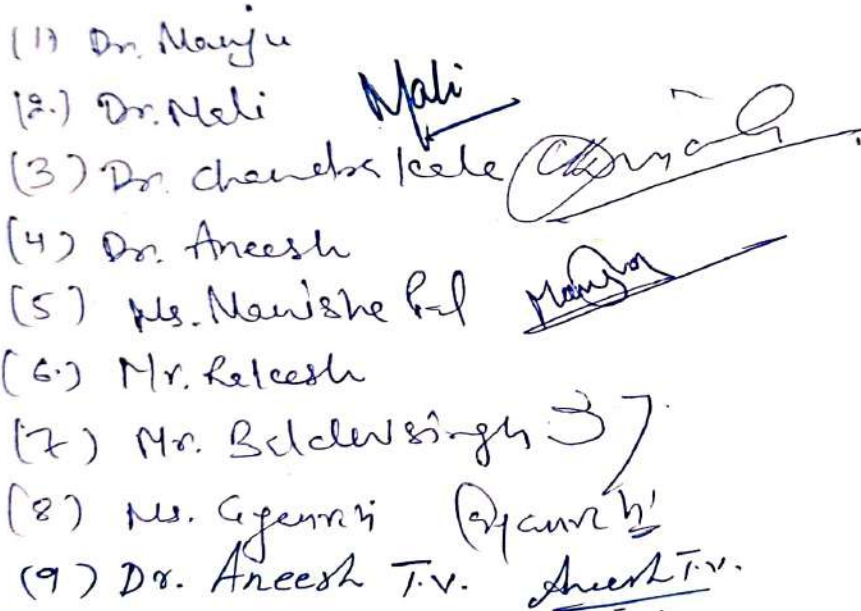 (1) Dr. Manju
(2.) Dr. Mali Mali
(3) Dr. chandra kala
(4) Dr. Aneesh
(5) Ms. Manisha Pal
(6.) Mr. Rakesh
(7) Mr. Baldev singh
(8) Ms. Gyanvi Gyanvi
(9) Dr. Aneesh T.V. Aneesh T.V.